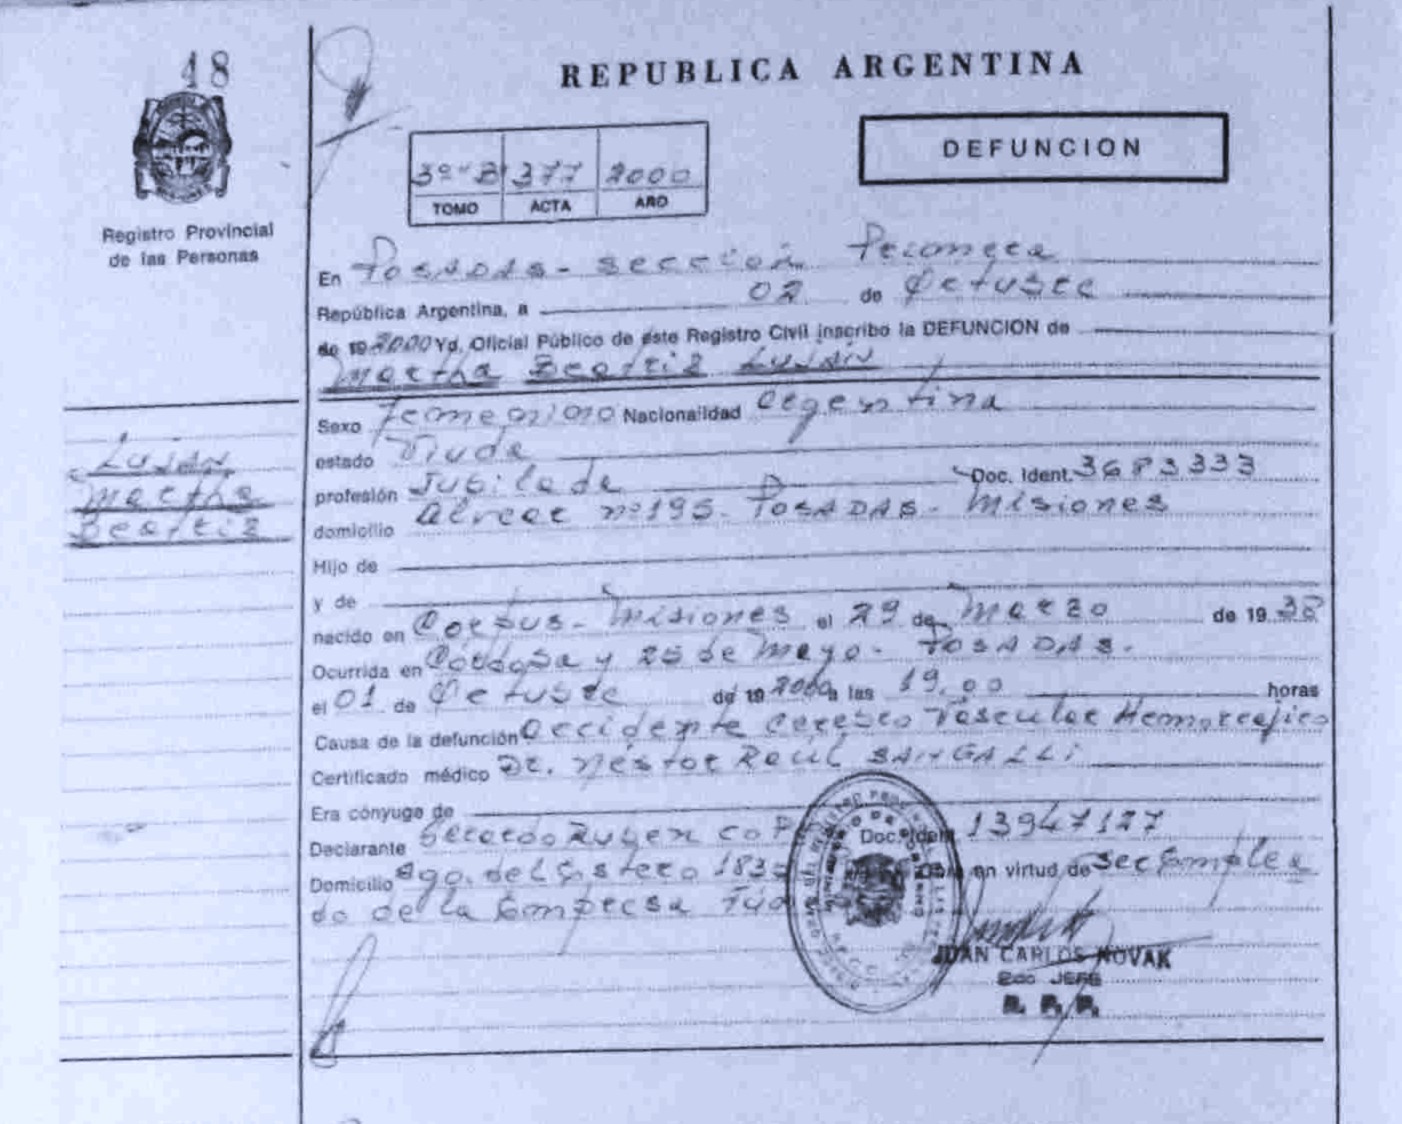 48
REPUBLICA ARGENTINA
DEFUNCION
3º "B" 377 2000
TOMO ACTA AÑO
Registro Provincial
de las Personas
En POSADAS - Sección
República Argentina, a 02 de Octubre
de 19 2000 Yo, Oficial Público de este Registro Civil inscribo la DEFUNCION de
Martha Beatriz LUJÁN
Sexo Femenino Nacionalidad Argentina
LUJÁN
Martha
Beatriz
estado Viuda
profesión Jubilada Doc. Ident. 3683333
domicilio Alvear nº195 - POSADAS - Misiones
Hijo de
y de
nacido en Corpus - Misiones el 29 de Marzo de 19 38
Ocurrida en Córdoba y 25 de Mayo - POSADAS.
el 01 de Octubre de 19 2000 a las 19,00 horas
Causa de la defunción Accidente Cerebro Vascular Hemorrágico
Certificado médico Dr. Néstor Raúl SANGALLI
Era cónyuge de
Declarante Gerardo Ruben Doc. Ident. 13947127
Domicilio Sgo. del Estero 183 Obra en virtud de ser Emplea
do de la Empresa
JUAN CARLOS NOVAK
2do JEFE
R. P. P.